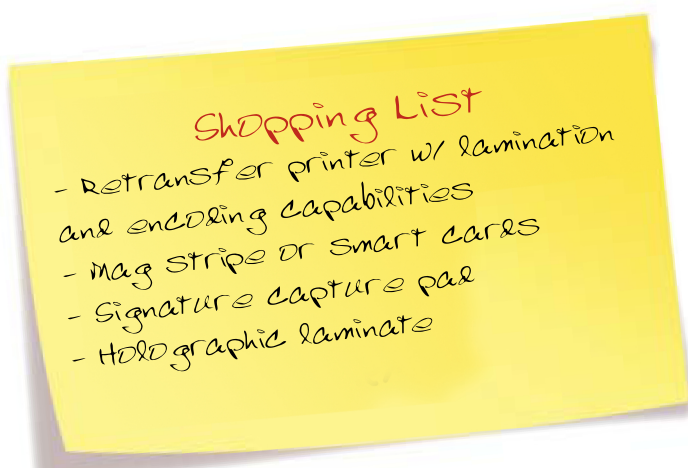 Shopping List
- Retransfer printer w/ lamination
and encoding capabilities
- Mag stripe or smart cards
- Signature capture pad
- Holographic laminate